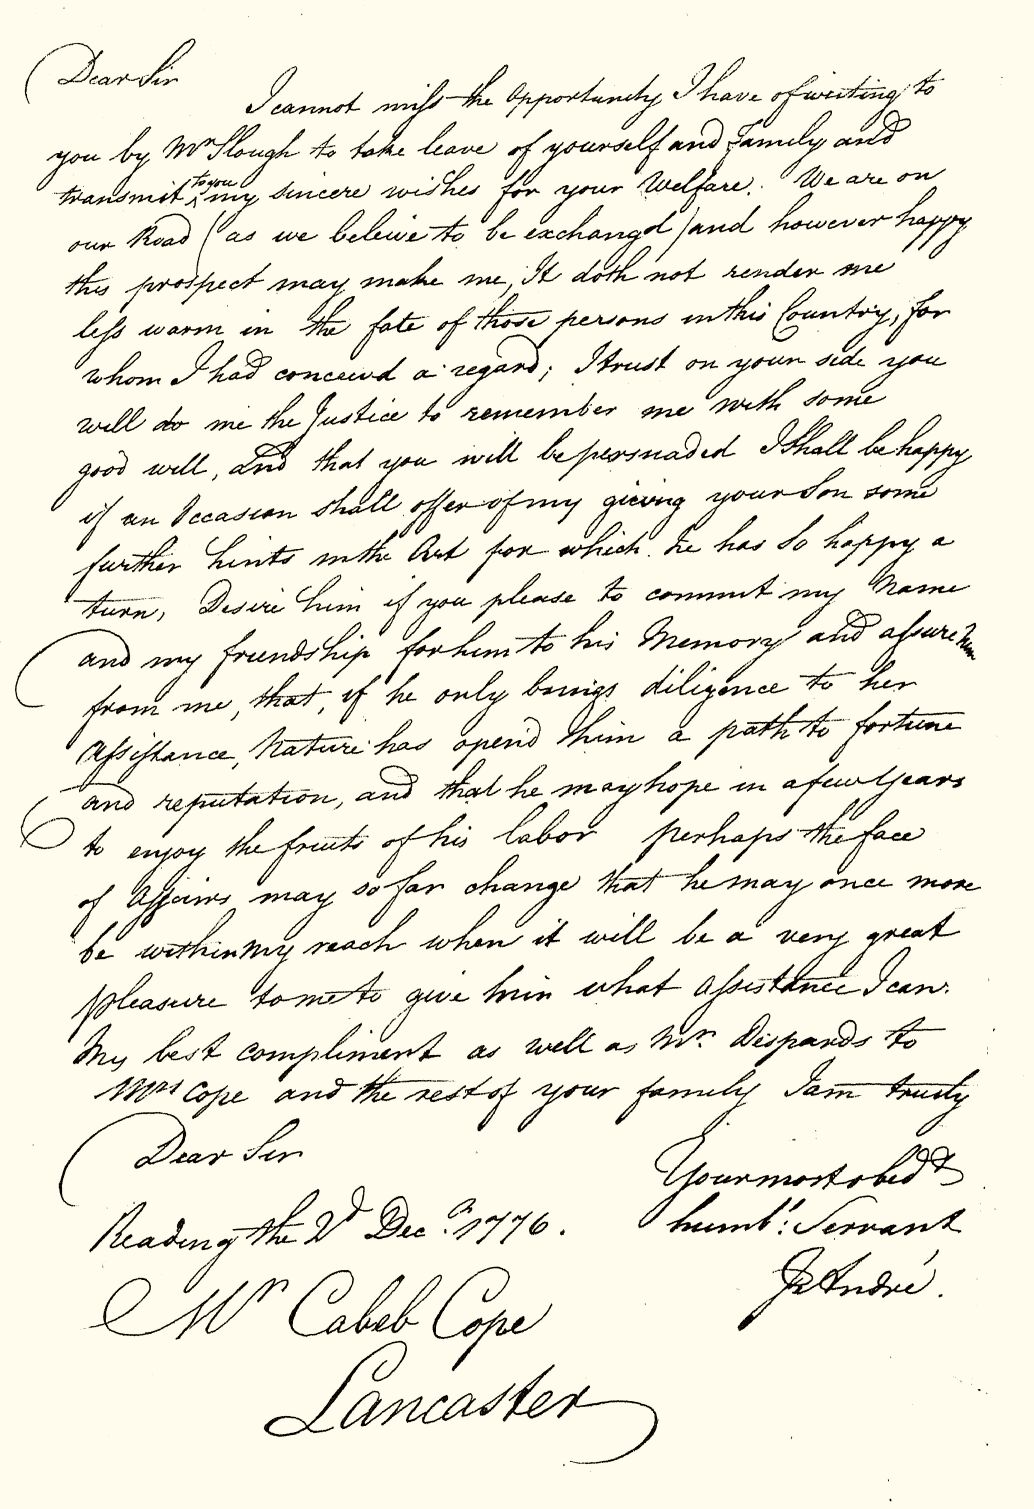 Dear Sir
I cannot miss the Opportunity I have of writing to
you by Mr Slough to take leave of yourself and Family and
transmit to you my sincere wishes for your Welfare. We are on
our Road (as we beleive to be exchangd) and however happy
this prospect may make me, It doth not render me
less warm in the fate of those persons in this Country, for
whom I had conceivd a regard; I trust on your side you
will do me the Justice to remember me with some
good will, and that you will be persuaded I Shall be happy
if an Occasion shall offer of my giving your Son some
further hints in the Art for which he has so happy a
turn, Desire him if you please to commit my Name
and my friendship for him to his Memory and assure him
from me, that, if he only brings diligence to her
Assistance, Nature has open'd him a path to fortune
and reputation, and that he may hope in a few Years
to enjoy the fruits of his labor perhaps the face
of Affairs may so far change that he may once more
be within my reach when it will be a very great
pleasure to me to give him what Assistance I can.
My best compliment as well as Mr. Dispards to
Mrs Cope and the rest of your family I am truely
Dear Sir
Your most obedt
humbl: Servant
Jn André.
Reading the 2d Decr. 1776.
Mr Cabeb Cope
Lancaster